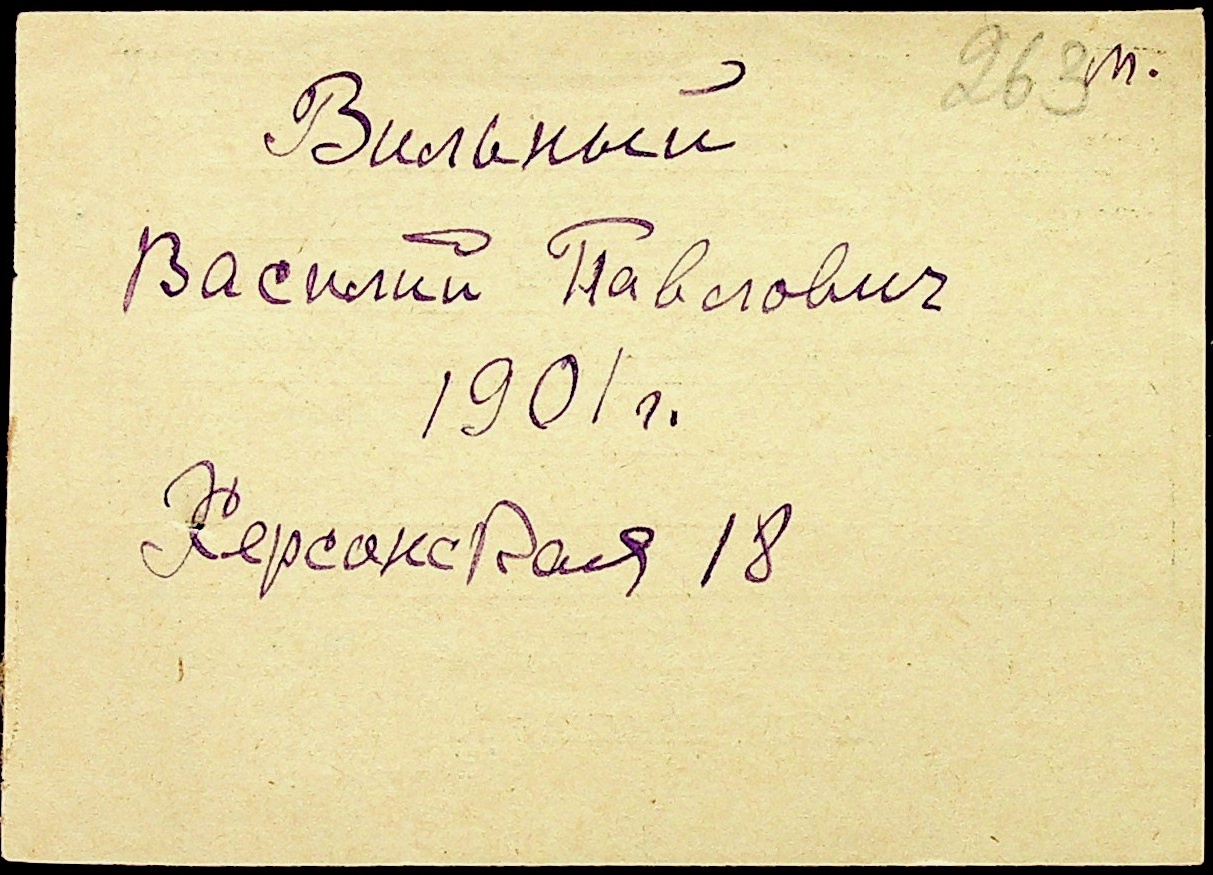 263 м.
Вильный
Василий Павлович
1901 г.
Херсонская 18